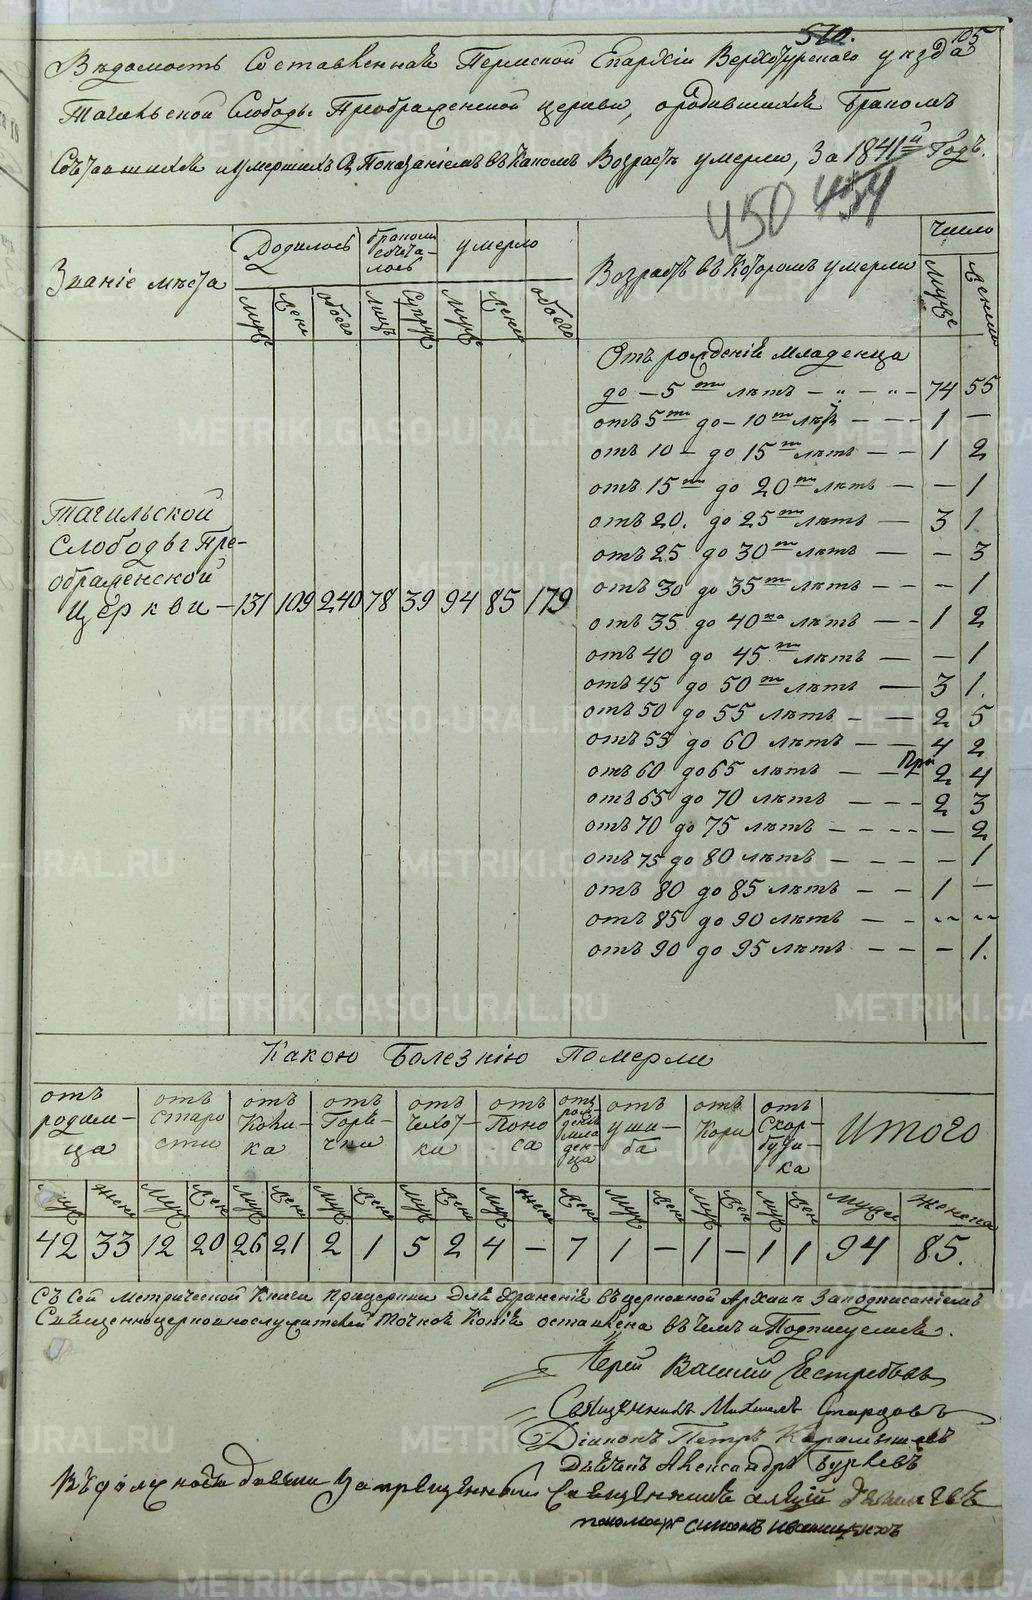 510.
105
Вѣдомость Составленная Пермской Епархіи Верхотурскаго уѣзда
Тагильской Слободы Преображенской церкви, о родившихся Бракомъ
Сочетавшихся и умершихъ съ Показаніемъ въ Какомъ Возрастѣ умерли, За 1841й Годъ.
450 454
Званіе мѣста
Родилось
бракомъ сочета-лось
умерло
Возрастъ въ Которомъ умерли
Число
Муж
Жен
обоего
Лицъ
Супруж
Муж
Жен
обоего
Муже
Женск
Отъ рожденія Младенца
до – 5ти лѣтъ – „ – „ – 74 55
отъ 5ти до – 10ти лѣтъ – – – 1 –
отъ 10 – до 15ти лѣтъ – – 1 2
отъ 15ти до 20ти лѣтъ – – 1
отъ 20. до 25ти лѣтъ – 3 1
отъ 25 до 30ти лѣтъ – – 3
отъ 30 до 35ти лѣтъ – – – 1
отъ 35 до 40ка лѣтъ – – 1 2
отъ 40 до 45ти лѣтъ – – 1
отъ 45 до 50ти лѣтъ – 3 1.
отъ 50 до 55 лѣтъ – – 2 5
отъ 55 до 60 лѣтъ – – 4 2
отъ 60 до 65 лѣтъ – – 2 4
отъ 65 до 70 лѣтъ – – – 2 3
отъ 70 до 75 лѣтъ – – – – – 2
отъ 75 до 80 лѣтъ – – – – 1
отъ 80 до 85 лѣтъ – – 1 –
отъ 85 до 90 лѣтъ – – „ „
отъ 90 до 95 лѣтъ – – – 1.
Тагильской
Слободы Пре-
ображенской
Церкви – 131 109 240 78 39 94 85 179
Какою Болезнію Померли
отъ родим-ца
отъ Старости
отъ Колика
отъ Горячки
отъ Чахотки
отъ Поноса
отъ рожденія младенца
отъ ушиба
отъ Кори
отъ Скорбудика
Итого
Муж Жен Муж Жен Муж Жен Муж Жен Муж Жен Муж Жен Жен Муж Жен Муж Жен Муж Жен Мужес Женска
42 33 12 20 26 21 2 1 5 2 4 – 7 1 – 1 – 1 1 94 85.
Съ Сей Метрической Книги Прицеркви Для Храненія въ церковной Архивѣ За подписаніемъ
Священноцерковнослужителей Точная Копія оставлена въ чемъ и Подписуемся.
Іерей Василій Ястребовъ
Священникъ Михаилъ Старцовъ
Діаконъ Петръ Карамышевъ
Дьячекъ Александръ Бурževъ
Въ должности дьячка Запрещенный Священникъ
пономарь Симонъ Иваницкихъ
METRIKI.GASO-URAL.RU